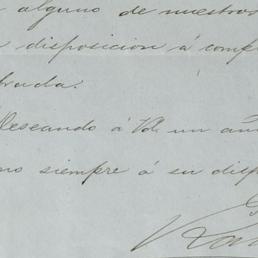 alguno de nuestros
disposicion á comp
trada.
Deseando á Vd. un
mo siempre á su disp